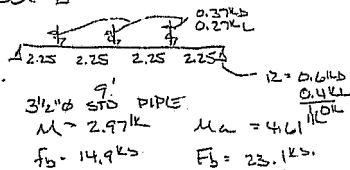 0.37ᵏD
0.27ᵏL
2.25 2.25 2.25 2.25
9'
R = 0.6ᵏD
0.4ᵏL
1.0ᵏ
3 1/2"ø STD PIPE
M = 2.97'ᵏ Ma = 4.61'ᵏ
fb = 14.9ᵏˢⁱ Fb = 23.1ᵏˢⁱ